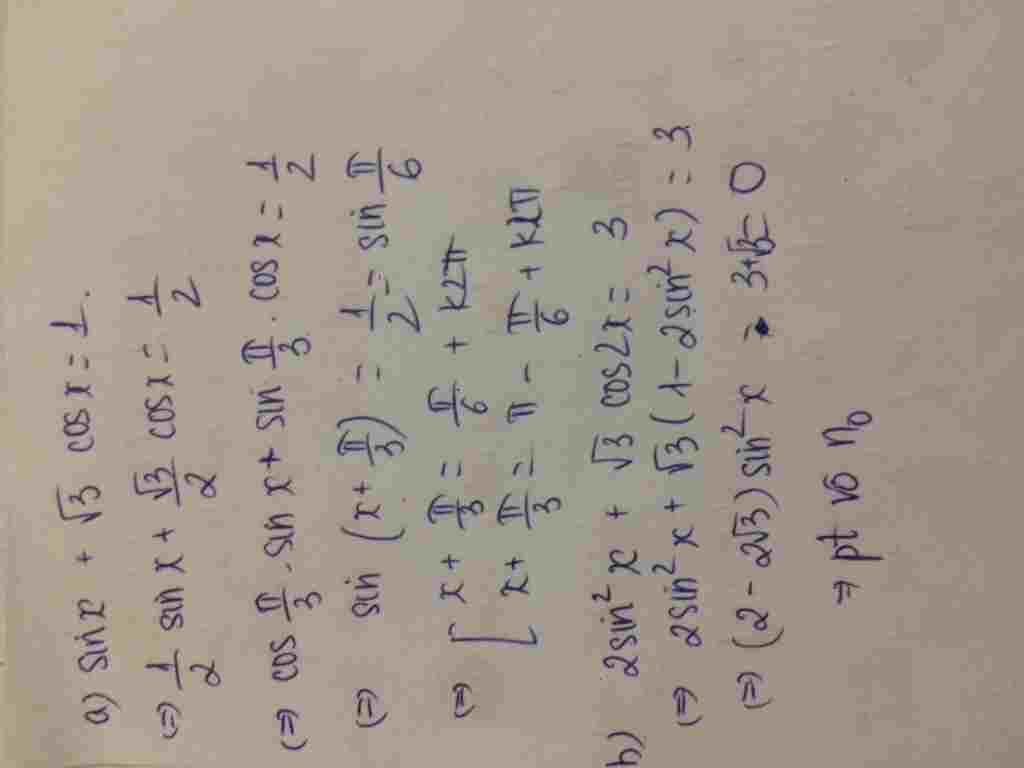 a) sinx + √3 cosx = 1.
(=) 1/2 sinx + √3/2 cosx = 1/2
(=) cos π/3 . sinx + sin π/3 . cosx = 1/2
(=) sin (x + π/3) = 1/2 = sin π/6
(=) [ x + π/3 = π/6 + k2π
x + π/3 = π - π/6 + k2π
b) 2sin²x + √3 cos2x = 3
(=) 2sin²x + √3 (1 - 2sin²x) = 3
(=) (2 - 2√3) sin²x - 3+√3 = 0
⇒ pt vô n0